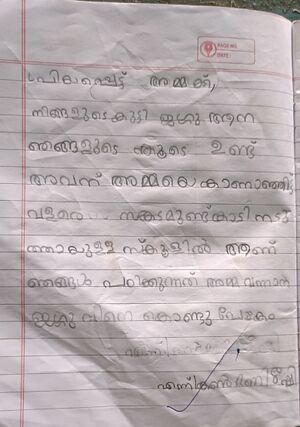 PAGE NO.
DATE:
പ്രിയപ്പെട്ട അമ്മക്ക്,
നിങ്ങളുടെ കുട്ടി ജഗ്ഗു ആന
ഞങ്ങളുടെ കൂടെ ഉണ്ട്
അവന് അമ്മയെ കാണാഞ്ഞിട്ട്
വളരെ സങ്കടമുണ്ട് കാടി നടു
ത്തായുള്ള സ്കൂളിൽ ആണ്
ഞങ്ങൾ പഠിക്കുന്നത് അമ്മ വന്നാൽ
ജഗ്ഗുവിനെ കൊണ്ടു പോകാം
എന്ന്